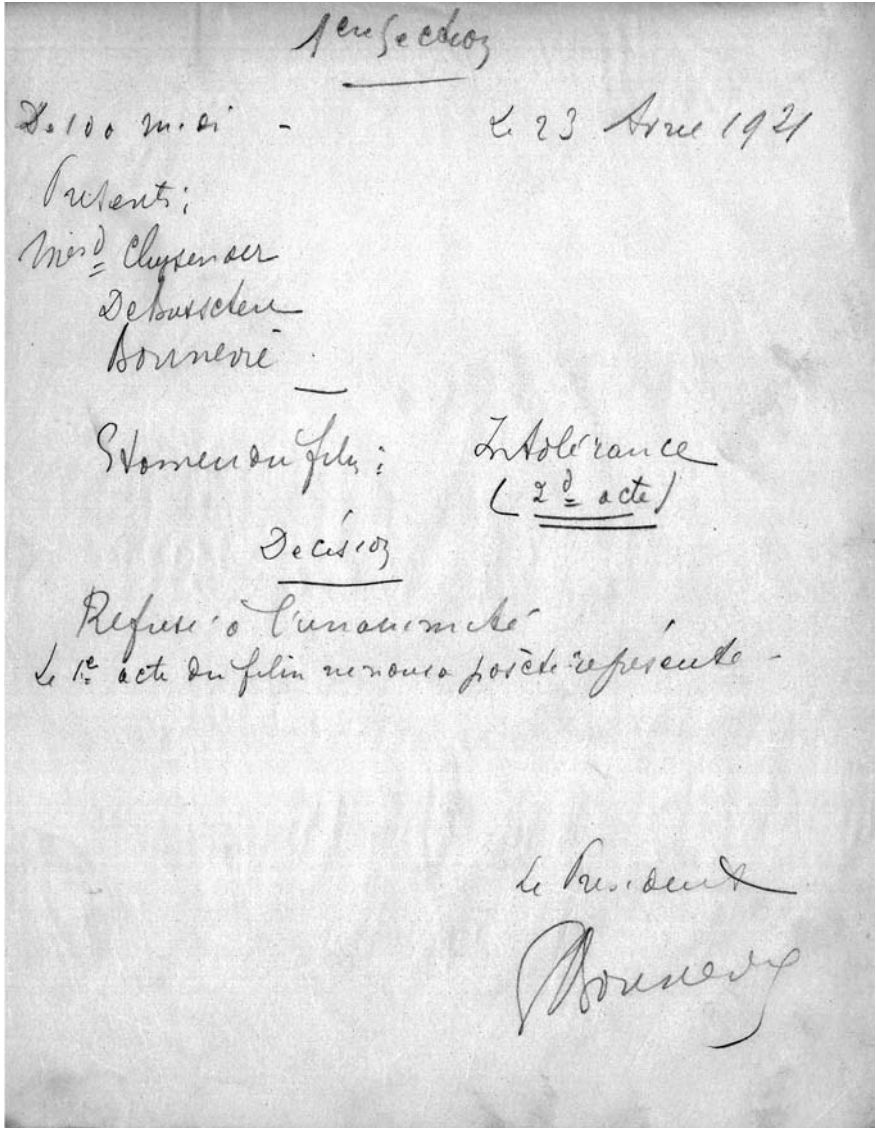 1ère Section
Le 23 Avril 1921
Présents :
Debusscher
Bonnevie
Examen du film : Intolérance
(2d acte)
Décision
Refusé à l'unanimité
Le 1er acte du film ne nous a pas été représenté -
Le Président
Bonnevie